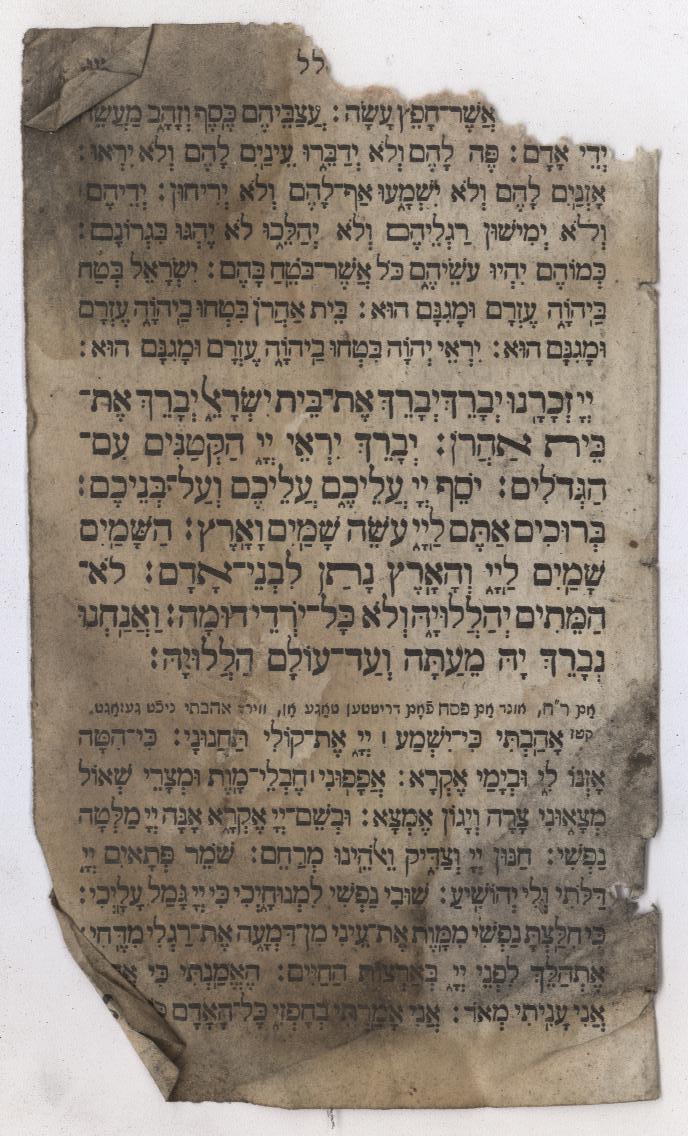 לל
אֲשֶׁר־חָפֵץ עָשָׂה: עֲצַבֵּיהֶם כֶּסֶף וְזָהָב מַעֲשֵׂה
יְדֵי אָדָם: פֶּה לָהֶם וְלֹא יְדַבֵּרוּ עֵינַיִם לָהֶם וְלֹא יִרְאוּ:
אָזְנַיִם לָהֶם וְלֹא יִשְׁמָעוּ אַף־לָהֶם וְלֹא יְרִיחוּן: יְדֵיהֶם
וְלֹא יְמִישׁוּן רַגְלֵיהֶם וְלֹא יְהַלֵּכוּ לֹא יֶהְגּוּ בִּגְרוֹנָם:
כְּמוֹהֶם יִהְיוּ עֹשֵׂיהֶם כֹּל אֲשֶׁר־בֹּטֵחַ בָּהֶם: יִשְׂרָאֵל בְּטַח
בַּיהוָֹה עֶזְרָם וּמָגִנָּם הוּא: בֵּית אַהֲרֹן בִּטְחוּ בַיהוָֹה עֶזְרָם
וּמָגִנָּם הוּא: יִרְאֵי יְהוָֹה בִּטְחוּ בַיהוָֹה עֶזְרָם וּמָגִנָּם הוּא:
יְיָ זְכָרָנוּ יְבָרֵךְ יְבָרֵךְ אֶת־בֵּית יִשְׂרָאֵל יְבָרֵךְ אֶת־
בֵּית אַהֲרֹן: יְבָרֵךְ יִרְאֵי יְיָ הַקְּטַנִּים עִם־
הַגְּדֹלִים: יֹסֵף יְיָ עֲלֵיכֶם עֲלֵיכֶם וְעַל־בְּנֵיכֶם:
בְּרוּכִים אַתֶּם לַייָ עֹשֵׂה שָׁמַיִם וָאָרֶץ: הַשָּׁמַיִם
שָׁמַיִם לַייָ וְהָאָרֶץ נָתַן לִבְנֵי־אָדָם: לֹא־
הַמֵּתִים יְהַלְלוּיָהּ וְלֹא כָּל־יֹרְדֵי דוּמָה: וַאֲנַחְנוּ
נְבָרֵךְ יָהּ מֵעַתָּה וְעַד־עוֹלָם הַלְלוּיָהּ:
אם ר״ח, אונד אם פסח פֿאם דריטטען טאגע אן, ווירד אהבתי ניכֿט געזאגט.
קטז אָהַבְתִּי כִּי־יִשְׁמַע ׀ יְיָ אֶת־קוֹלִי תַּחֲנוּנָי: כִּי־הִטָּה
אָזְנוֹ לִי וּבְיָמַי אֶקְרָא: אֲפָפוּנִי ׀ חֶבְלֵי־מָוֶת וּמְצָרֵי שְׁאוֹל
מְצָאוּנִי צָרָה וְיָגוֹן אֶמְצָא: וּבְשֵׁם־יְיָ אֶקְרָא אָנָּה יְיָ מַלְּטָה
נַפְשִׁי: חַנּוּן יְיָ וְצַדִּיק וֵאלֹהֵינוּ מְרַחֵם: שֹׁמֵר פְּתָאיִם יְיָ
דַּלֹּתִי וְלִי יְהוֹשִׁיעַ: שׁוּבִי נַפְשִׁי לִמְנוּחָיְכִי כִּי יְיָ גָּמַל עָלָיְכִי:
כִּי חִלַּצְתָּ נַפְשִׁי מִמָּוֶת אֶת־עֵינִי מִן־דִּמְעָה אֶת־רַגְלִי מִדֶּחִי:
אֶתְהַלֵּךְ לִפְנֵי יְיָ בְּאַרְצוֹת הַחַיִּים: הֶאֱמַנְתִּי כִּי
אֲנִי עָנִיתִי מְאֹד: אֲנִי אָמַרְתִּי בְחָפְזִי כָּל־הָאָדָם